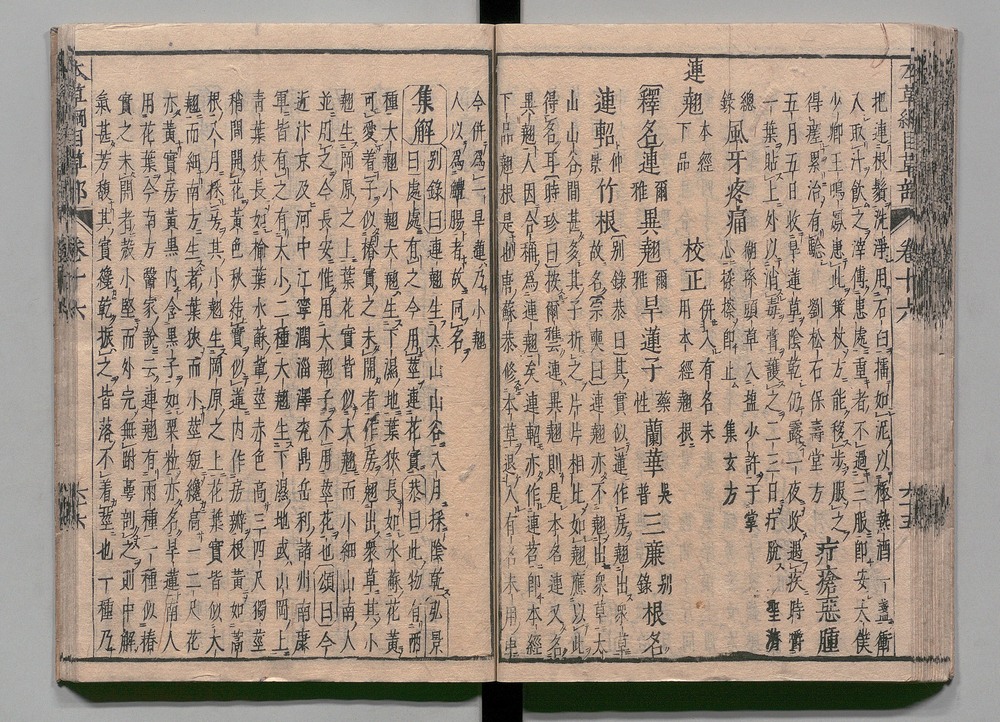 本草綱目草部 卷十六 六十五
把連根鬚洗淨用石臼擂如泥以極熱酒一盞衝
入取汁飲之滓傅患處重者不過二服即安太僕
少卿王鳴鳳患此策杖方能移步服之 疔瘡惡腫
得瘥累治有驗 劉松石保壽堂方
五月五日收旱蓮草陰乾仍露一夜收遇疾時嚼
一葉貼上外以消毒膏護之二三日疔脫 聖濟
總錄 風牙疼痛 猢孫頭草入鹽少許于掌心揉擦即止 集玄方
連翹 本經下品 校正 併入有名未用本經翹根
釋名連 爾雅 異翹 爾雅 旱蓮子 藥性 蘭華 吳普 三廉 別錄 根名
連軺 仲景 竹根 別錄恭曰其實似蓮作房翹出衆草
故名宗奭曰連翹亦不翹出衆草太
山山谷間甚多其子折之片片相比如翹應以此
得名耳時珍曰按爾雅云連異翹則是本名連又名
異翹人因合稱爲連翹矣連軺亦作連苕即本經
下品翹根是也唐蘇恭修本草退入有名未用中
今併爲一旱蓮乃小翹
人以爲鱧腸者故同名
集解 別錄曰連翹生太山山谷八月採陰乾弘景
曰處處有之今用莖連花實恭曰此物有兩
種大翹小翹大翹生下濕地葉狹長如水蘇花黃
可愛着子似椿實之未開者作房翹出衆草其小
翹生岡原之上葉花實皆似大翹而小細山南人
並用之今長安惟用大翹子不用莖花也頌曰今
近汴京及河中江寧潤淄澤兗鼎岳利諸州南康
軍皆有之有大小二種大翹生下濕地或山岡上
青葉狹長如榆葉水蘇軰莖赤色高三四尺獨莖
稍間開花黃色秋結實似蓮內作房瓣根黃如蒿
根八月採房小翹生岡原之上花葉實皆似大
翹而細南方生者葉狹而小莖短纔高一二尺花
亦黃實房黃黑內含黑子如粟粒亦名旱蓮南人
用花葉今南方醫家說云連翹有兩種一種似椿
實之未開者殼小堅而外完無跗萼剖之則中解
氣甚芳馥其實纔乾振之皆落不着莖也一種乃
本草綱目草部 卷十六